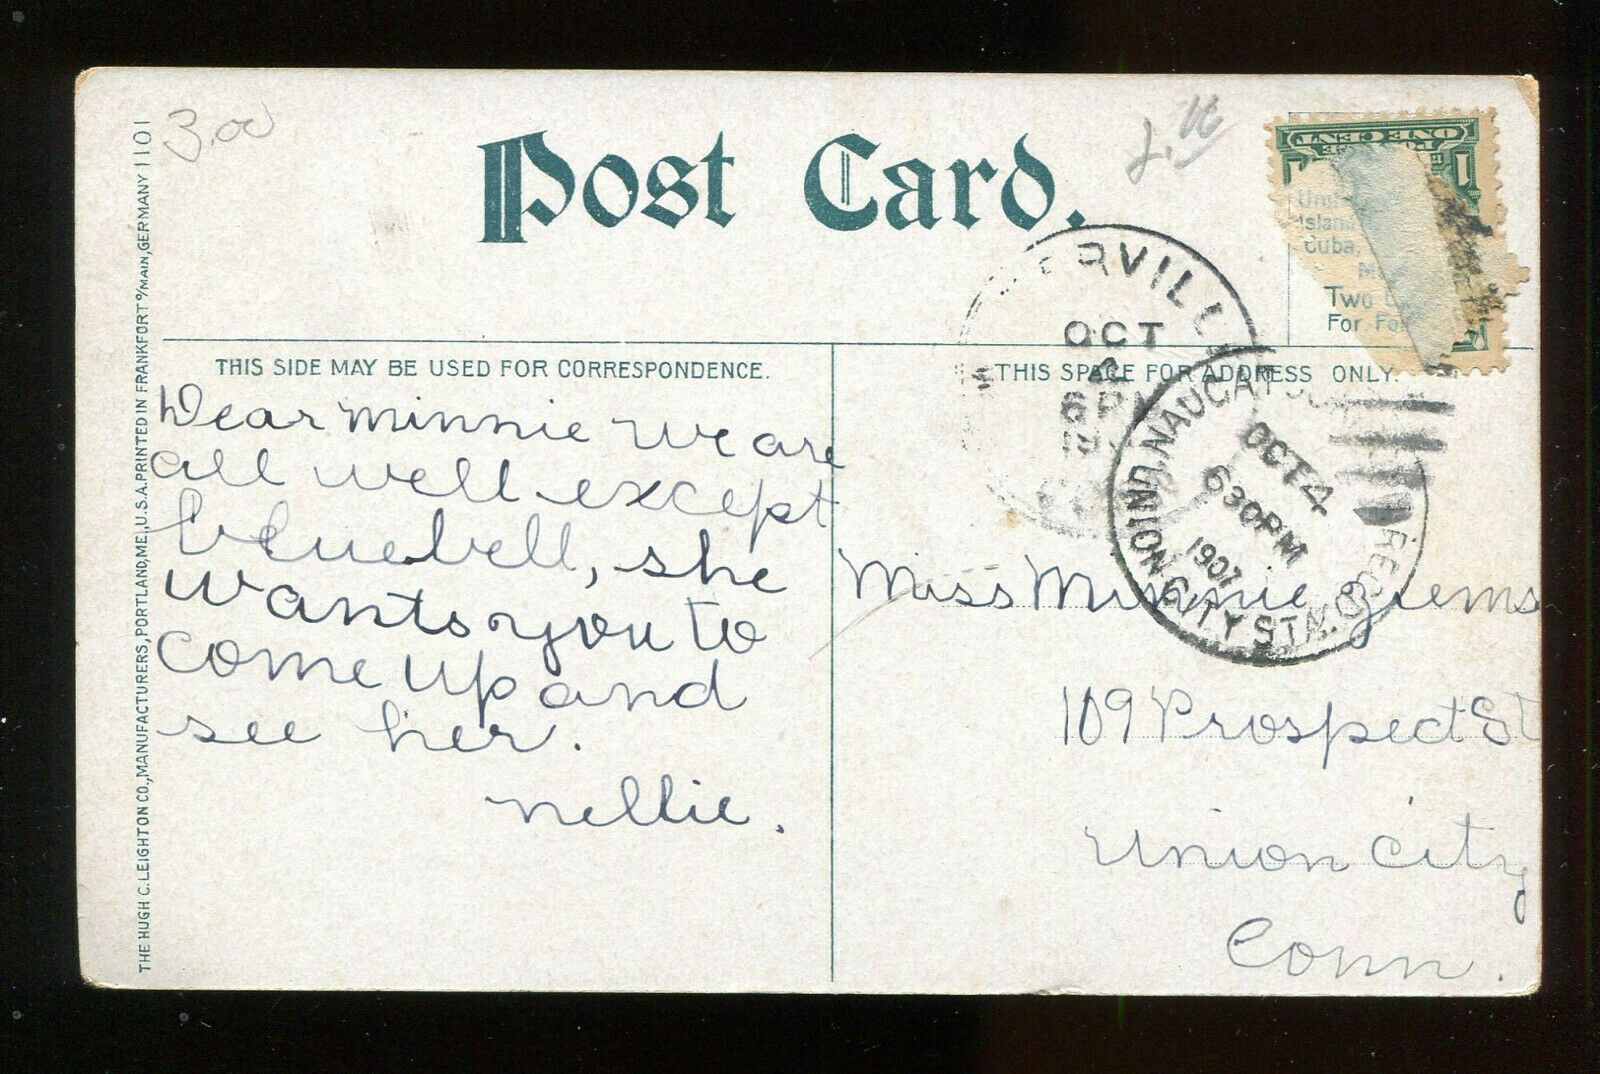 3.00
Post Card.
ONE CENT
1
1
Island
Cuba,
Two
For
ERVILL
OCT
6 PM
THE HUGH C. LEIGHTON CO., MANUFACTURERS, PORTLAND, ME., U.S.A. PRINTED IN FRANKFORT o/MAIN, GERMANY 1101
THIS SIDE MAY BE USED FOR CORRESPONDENCE.
THIS SPACE FOR ADDRESS ONLY.
Dear Minnie We are
all well except
bluebell, she
wants you to
come up and
see her.
Nellie.
OCT 4
630PM
1907
REC'D.
UNION CITY STA.
Miss Minnie Ziems
109 Prospect St
Union City
Conn.